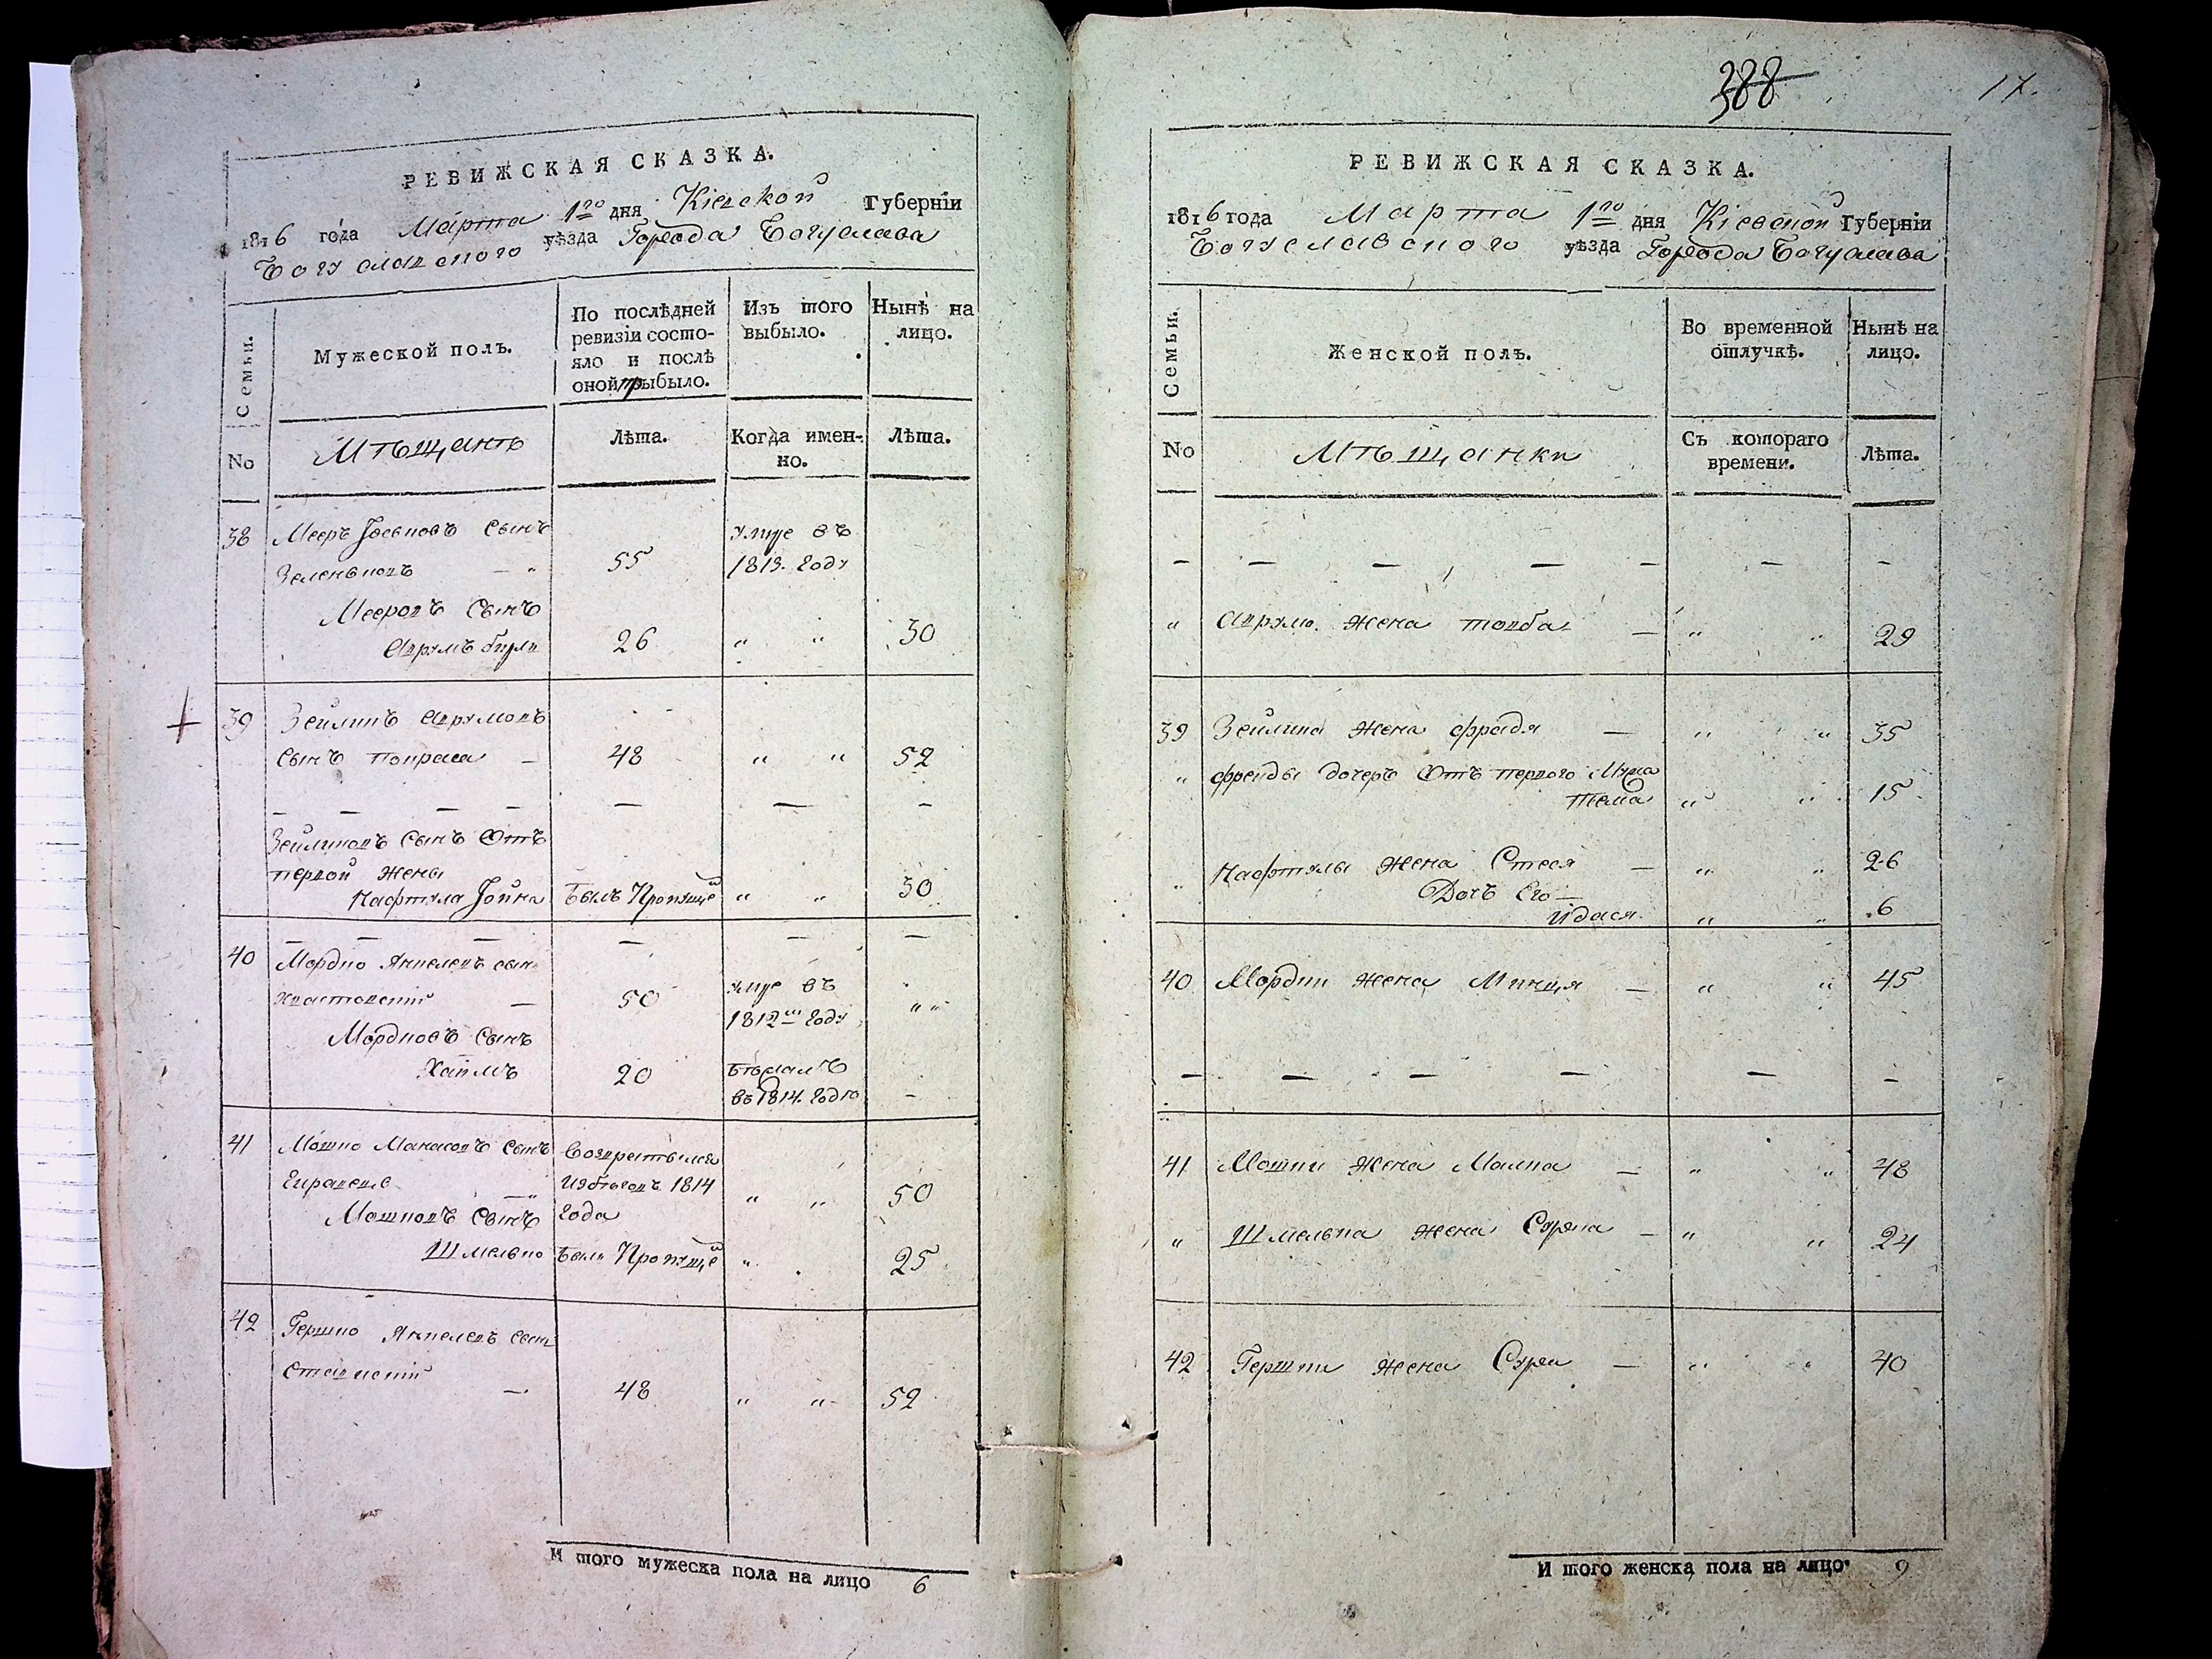 РЕВИЖСКАЯ СКАЗКА.
1816 года Марта 1го дня Кіевской Губерніи
Богуславского уѣзда Города Богуслава
Семьи.
Мужеской полъ.
По послѣдней
ревизіи состо-
яло и послѣ
оной прыбыло.
Изъ того
выбыло.
Нынѣ на
лицо.
No
Мѣщанѣ
Лѣта.
Когда имен-
но.
Лѣта.
38 Мееръ Іоськовъ сынъ умре въ
55 1813. году
Мееровъ Сынъ
26 " " 30
39 Зейликъ Аврумовъ
сынъ 48 " " 52
— — — — — — —
Зейликовъ Сынъ Отъ
первой жены
Нафтула Іойна былъ Пропуще " " 30
— — — — — —
40 Мордко Янкелевъ сынъ
50 умре въ
1812м году " "
Мордковъ Сынъ
Хаимъ 20 Бѣжалъ
въ 1814. году —
41 Мошко Манасовъ сынъ Возвратился
Изъ бѣговъ 1814 " " 50
Мошковъ Сынъ года
Шмелько былъ Пропуще " 25
42 Гершко Янкелевъ сынъ
48 " " 52
И того мужеска пола на лицо 6
388
17.
РЕВИЖСКАЯ СКАЗКА.
1816 года Марта 1го дня Кіевской Губерніи
Богуславского уѣзда Города Богуслава
Семьи.
Женской полъ.
Во временной
отлучкѣ.
Нынѣ на
лицо.
No
Мѣщанки
Съ котораго
времени.
Лѣта.
— — — — — — —
" Аврума жена Товба — " " 29
39 Зейлика жена Фрадя — " " 35
" Фрейды дочеръ Отъ первого Мужа
" " 15
" Нафтулы жена Стеся — " " 26
Дочъ Его —
Идася " " 6
40 Мордки жена Минця — " " 45
— — — — — —
41 Мошки жена Малка — " " 48
" Шмелька жена Сурка — " " 24
42 Гершки жена Сура — " " 40
И того женска пола на лицо 9